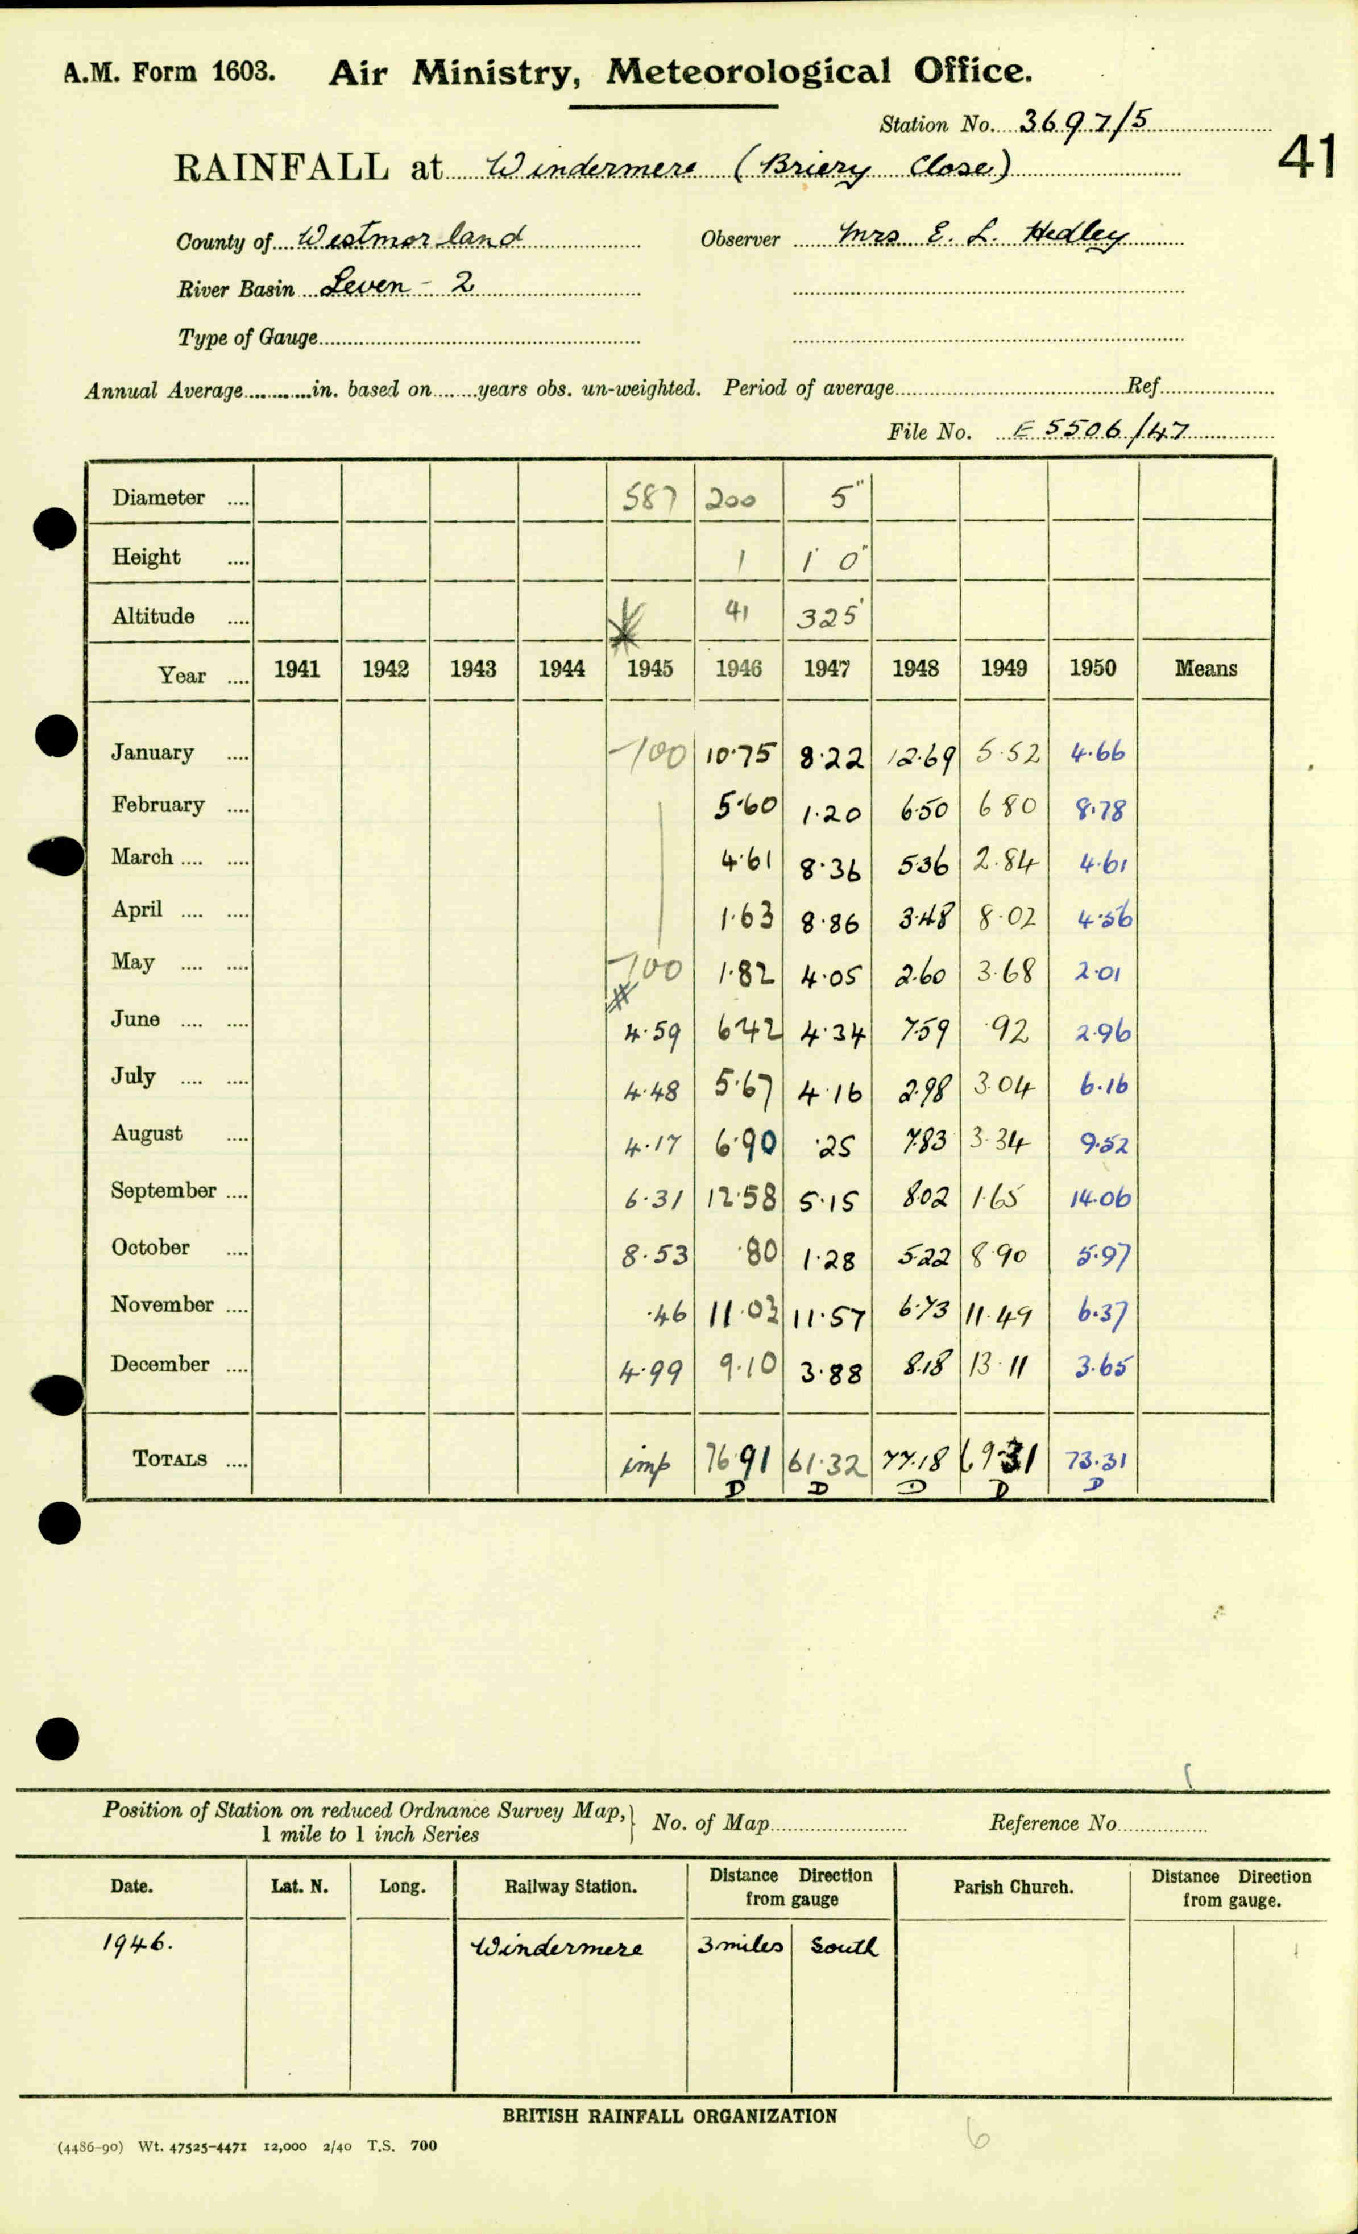 A.M. Form 1603. Air Ministry, Meteorological Office.
Station No. 3697/5
41
RAINFALL at Windermere (Briery Close)
County of Westmorland Observer Mrs E. L. Hedley
River Basin Leven - 2
Type of Gauge
Annual Average in. based on years obs. un-weighted. Period of average Ref
File No. E 5506/47
Diameter 587 200 5"
Height 1 1' 0"
Altitude 41 325'
Year 1941 1942 1943 1944 1945 1946 1947 1948 1949 1950 Means
January -100 10.75 8.22 12.69 5.52 4.66
February 5.60 1.20 6.50 6 80 8.78
March 4.61 8.36 5.36 2.84 4.61
April 1.63 8.86 3.48 8.02 4.56
May -100 1.82 4.05 2.60 3.68 2.01
June 4.59 6.42 4.34 7.59 .92 2.96
July 4.48 5.67 4.16 2.98 3.04 6.16
August 4.17 6.90 .25 7.83 3.34 9.52
September 6.31 12.58 5.15 8.02 1.65 14.06
October 8.53 .80 1.28 5.22 8.90 5.97
November .46 11.03 11.57 6.73 11.49 6.37
December 4.99 9.10 3.88 8.18 13.11 3.65
TOTALS imp 76.91 61.32 77.18 69.31 73.31
D D D D D
Position of Station on reduced Ordnance Survey Map, 1 mile to 1 inch Series } No. of Map Reference No
Date. Lat. N. Long. Railway Station. Distance Direction from gauge Parish Church. Distance Direction from gauge.
1946. Windermere 3 miles South
BRITISH RAINFALL ORGANIZATION
6
(4486-90) Wt. 47525-4471 12,000 2/40 T.S. 700